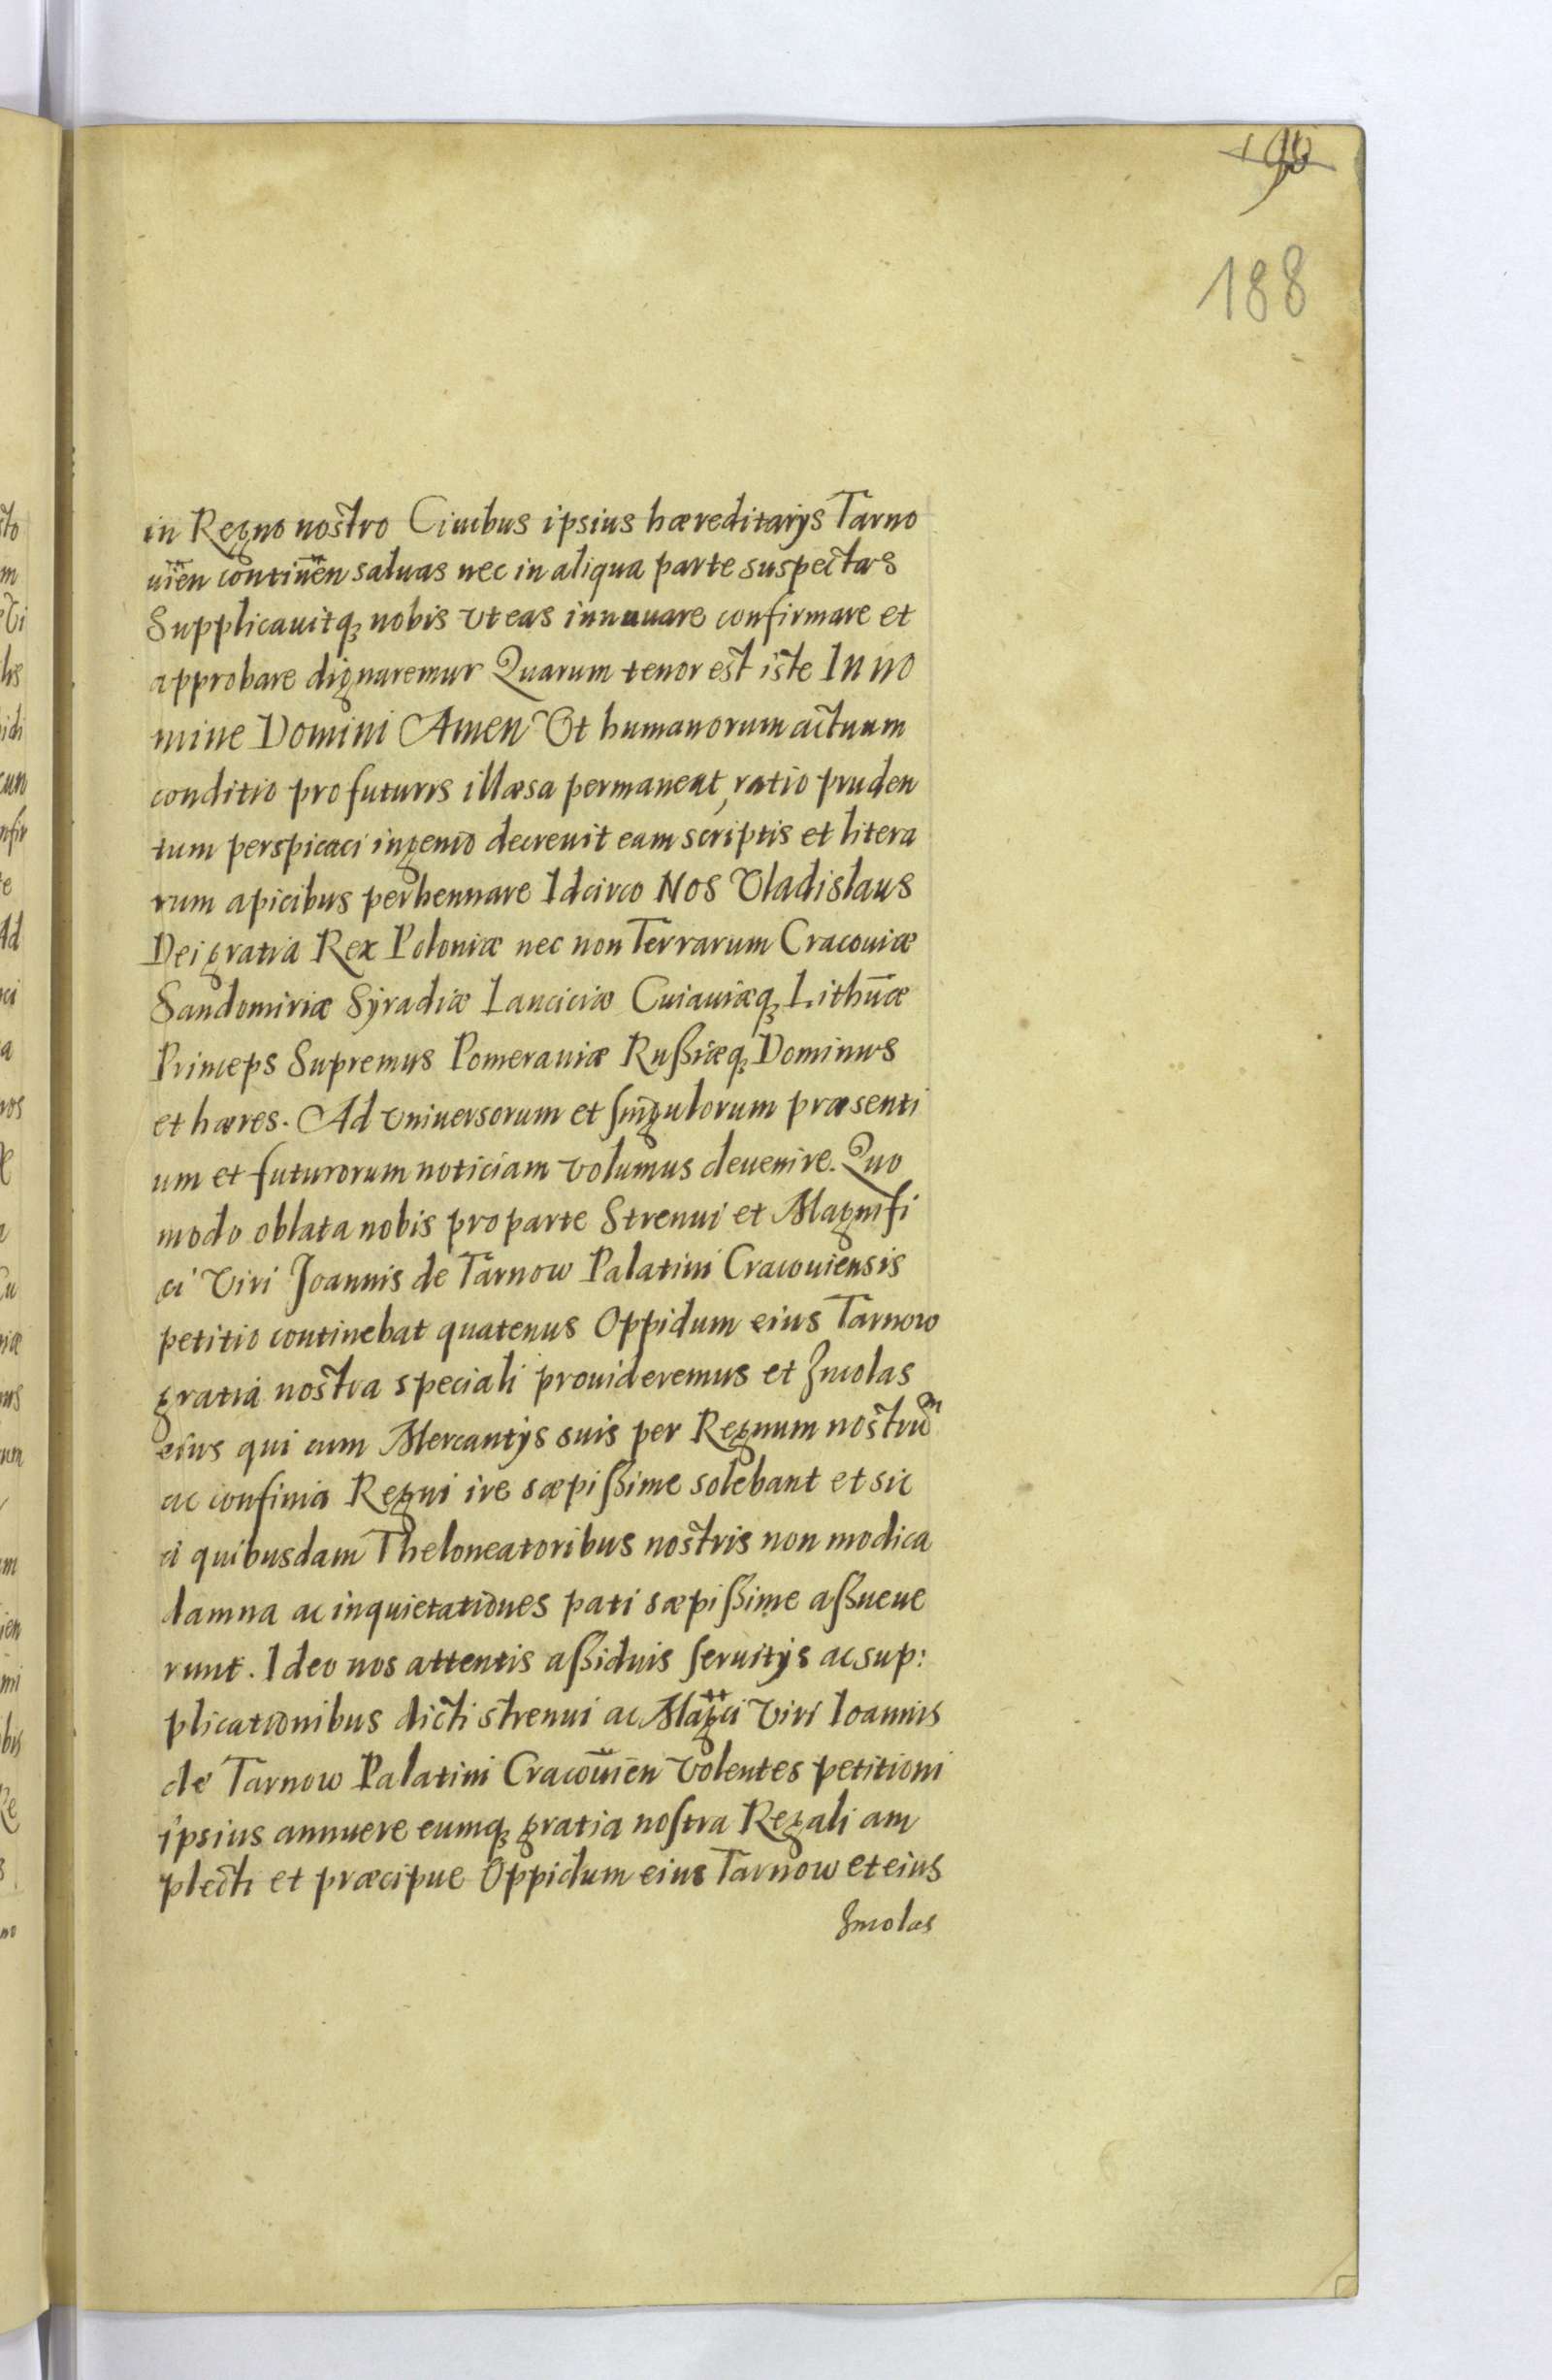 188
in Regno nostro Ciuibus ipsius hæreditarys Tarno
uień continēn saluas nec in aliqua parte suspectas
Supplicauitq nobis vt eas innouare confirmare et
approbare dignaremur Quarum tenor est iste In no
mine Domini Amen Vt humanorum actuum
conditio pro futuris illæsa permaneat, ratio pruden
tum perspicaci ingenio decreuit eam scriptis et litera
rum apicibus perhennare Idcirco Nos Vladislaus
Dei gratia Rex Poloniæ nec non Terrarum Cracouiæ
Sandomiriæ Syradiæ Lanciciæ Cuiauiæq Lithūæ
Princeps Supremus Pomeraniæ Rußiæq Dominus
et hæres. Ad vniuersorum et singulorum præsenti
um et futurorum noticiam volumus deuenire. Quo
modo oblata nobis pro parte Strenui et Magnifi
ci Viri Joannis de Tarnow Palatini Cracouiensis
petitio continebat quatenus Oppidum eius Tarnow
gratia nostra speciali prouideremus et Jncolas
eius qui cum Mercantys suis per Regnum nostrum
ac confinia Regni ire sæpißime solebant et sic
a quibusdam Theloneatoribus nostris non modica
damna ac inquietationes pati sæpißime aßueue
runt. Ideo nos attentis aßiduis seruitys ac sup:
plicationibus dicti strenui ac Magci Viri Ioannis
de Tarnow Palatini Cracouień Volentes petitioni
ipsius annuere eumq gratia nostra Regali am
plecti et præcipue Oppidum eius Tarnow et eius
Jncolas